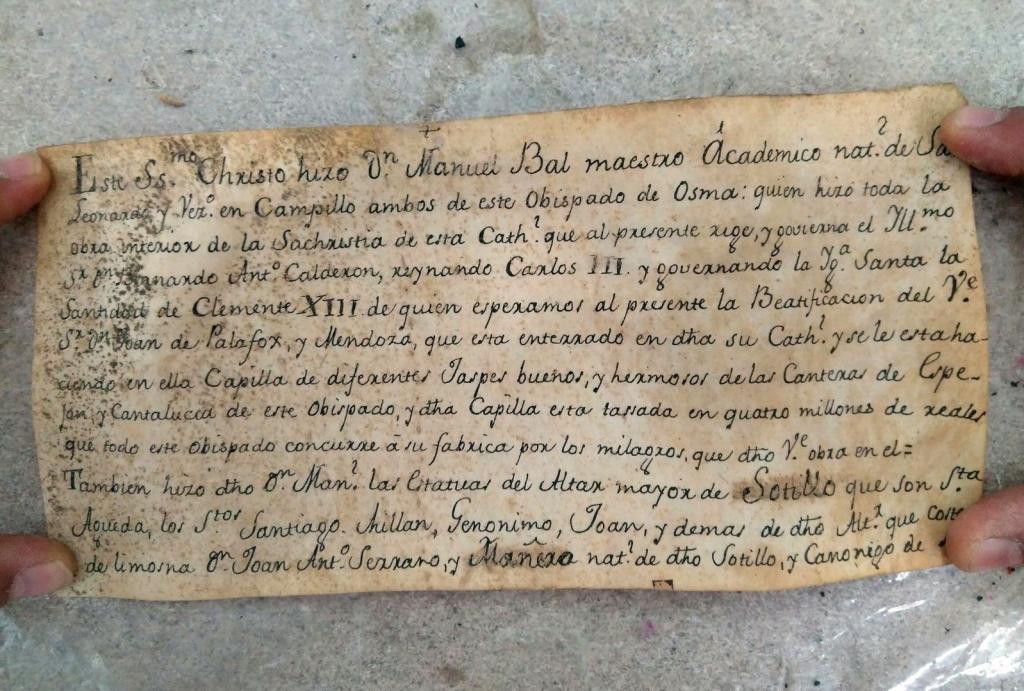 +
Este Ss.mo Christo hizo Dn. Manuel Bal maestro Academico nat.l de Sn
Leonardo y Vez.o en Campillo ambos de este Obispado de Osma: quien hizo toda la
obra interior de la Sachristia de esta Cath.l que al presente rige, y govierna el Yll.mo
Sr. Dn. Bernardo Ant.o Calderon, reynando Carlos III. y governando la Yg.a Santa la
Santidad de Clemente XIII. de quien esperamos al presente la Beatificacion del V.e
Sr. Dn. Joan de Palafox, y Mendoza, que esta enterrado en dha su Cath.l y se le esta ha-
ciendo en ella Capilla de diferentes Jaspes buenos, y hermosos de las Canteras de Espe-
jon, y Cantalucia de este Obispado, y dha Capilla esta tassada en quatro millones de reales
que todo este Obispado concurre â su fabrica por los milagros, que dho V.e obra en el=
Tambien hizo dho Dn. Man.l las Estatuas del Altar mayor de Sotillo que son S.ta
Agueda, los S.tos Santiago, Millan, Geronimo, Joan, y demas de dho Alt.r que costeo
de limosna Dn. Joan Ant.o Serrano, y Mañero nat.l de dho Sotillo, y Canonigo de